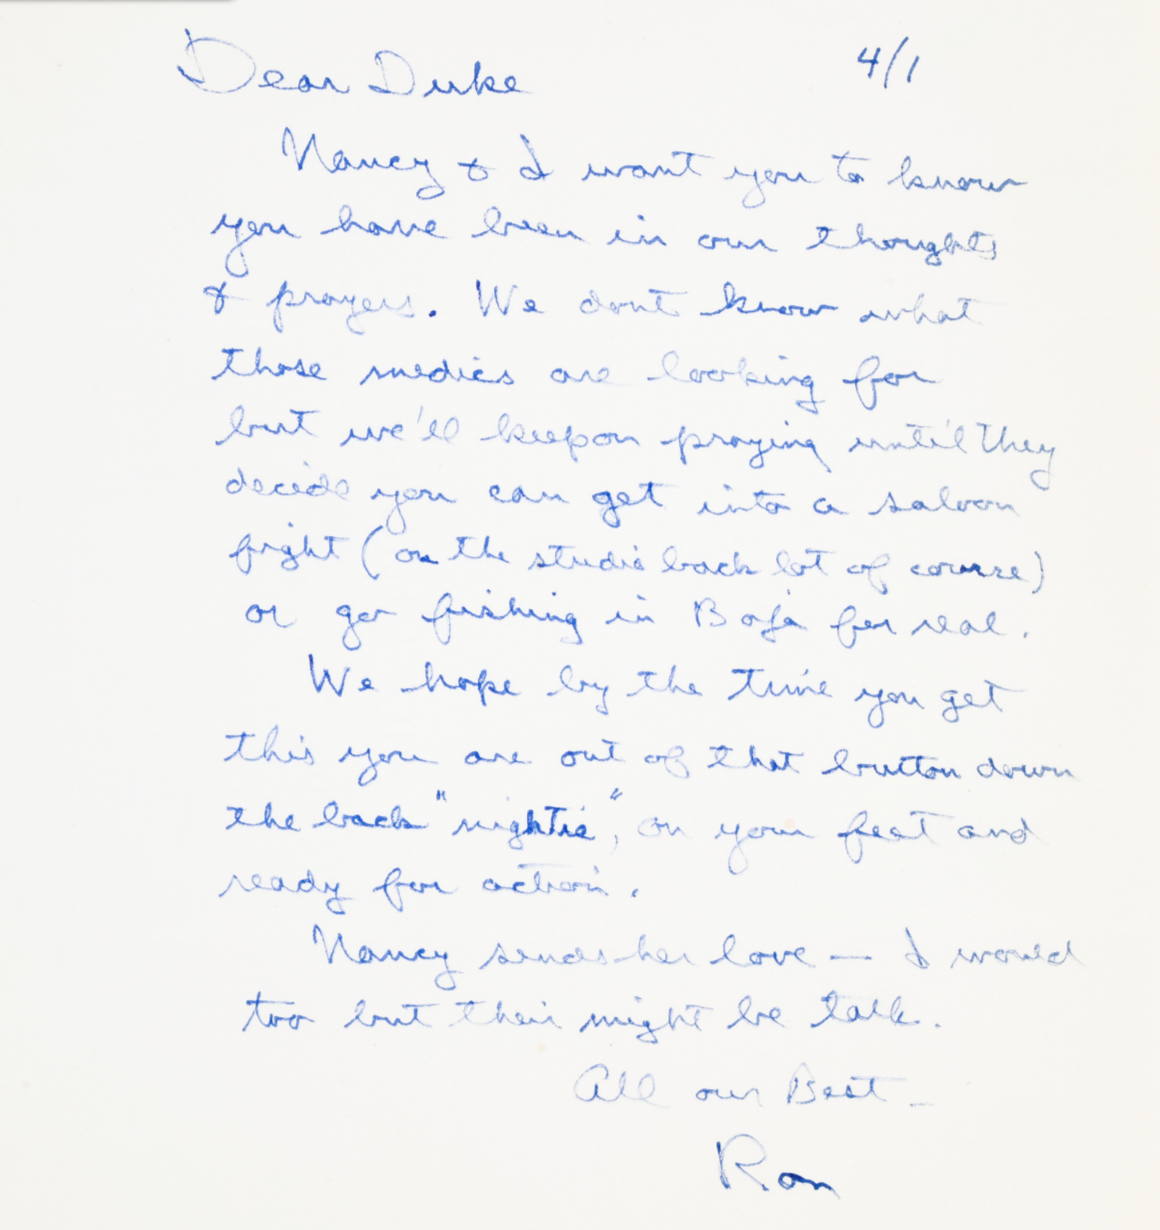 Dear Duke 4/1
Nancy & I want you to know
you have been in our thoughts
& prayers. We dont know what
those medics are looking for
but we'll keep on praying until they
decide you can get into a saloon
fight (on the studio back lot of course)
or go fishing in Baja for real.
We hope by the time you get
this you are out of that button down
the back "nightie", on your feet and
ready for action.
Nancy sends her love — I would
too but their might be talk.
All our Best —
Ron